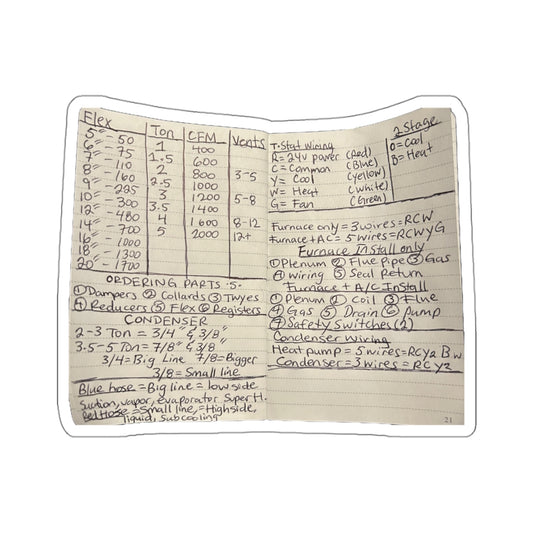 Flex
5" - 50
6" - 75
7" - 110
8" - 160
9" - 225
10" - 300
12" - 480
14" - 700
16" - 1000
18" - 1300
20" - 1700
Ton
1
1.5
2
2.5
3
3.5
4
5
CFM
400
600
800
1000
1200
1400
1600
2000
Vents
3-5
5-8
8-12
12+
ORDERING PARTS ·5·
① Dampers ② Collards ③ Twyes
④ Reducers ⑤ Flex ⑥ Registers
CONDENSER
2-3 Ton = 3/4" & 3/8"
3.5-5 Ton = 7/8" & 3/8
3/4=Big Line 7/8=Bigger
3/8=Small line
Blue hose = Big line = low side
Suction, vapor, evaporator Super H.
Red Hose = Small line, = Highside,
liquid, Subcooling
T-Stat Wiring
R= 24V power (Red)
C= Common (Blue)
Y= Cool (Yellow)
W= Heat (White)
G= Fan (Green)
2 Stage
O= Cool
B= Heat
Furnace only = 3 wires = RCW
Furnace + AC = 5 wires = RCWYG
Furnace Install only
① Plenum ② Flue Pipe ③ Gas
④ Wiring ⑤ Seal Return
Furnace + A/C Install
① Plenum ② Coil ③ Flue
④ Gas ⑤ Drain ⑥ Pump
⑦ Safety Switches (2)
Condenser Wiring
Heat pump = 5 wires = RCY2 B W
Condenser = 3 wires = RCY2
21